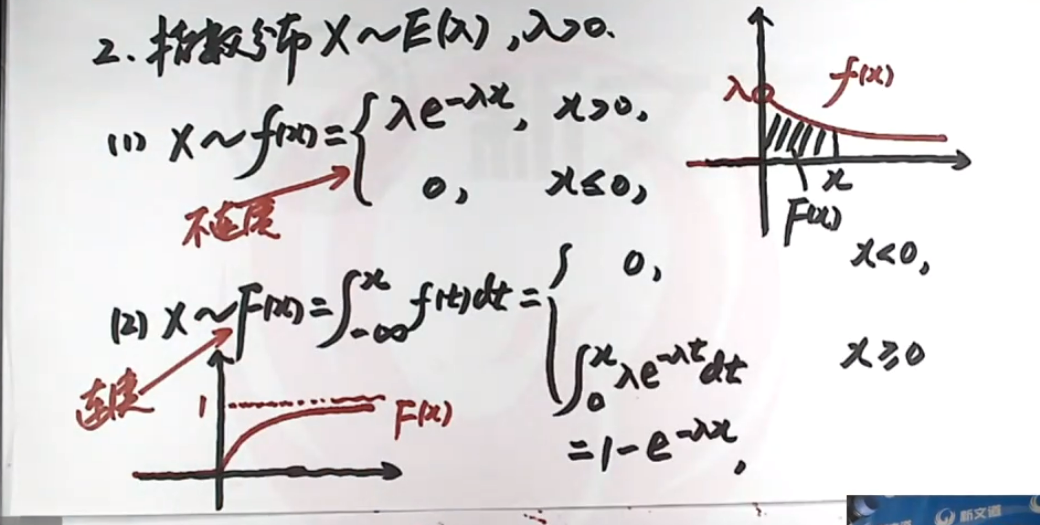 2. 指数分布 X~E(λ), λ>0.
(1) X~f(x)={ λe^{-λx}, x>0,
0, x≤0,
不连续
λ f(x)
x
F(x)
(2) X~F(x)=∫_{-∞}^{x} f(t)dt={ 0, x<0,
∫_{0}^{x} λe^{-λt}dt x≥0
=1-e^{-λx},
连续
1 F(x)
新文道